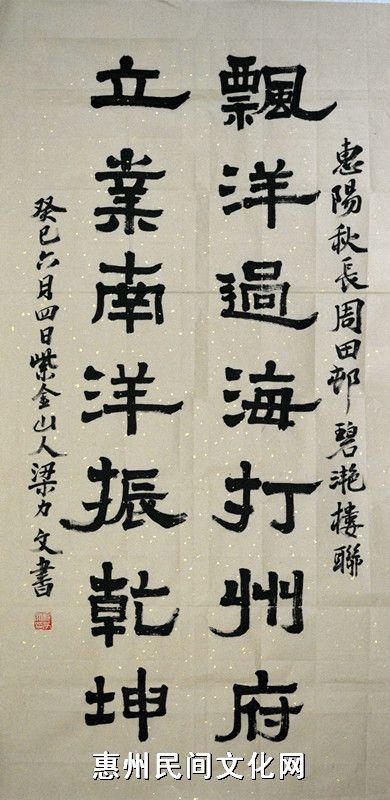 惠陽秋長周田邨碧滟樓聯
飄洋過海打州府
立業南洋振乾坤
癸巳六月四日紫金山人梁力文書
惠州民间文化网